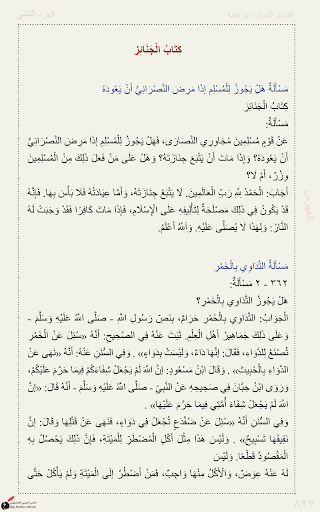 الفتاوى الكبرى - ابن تيمية
الجزء الثاني
كِتَابُ الْجَنَائِزِ
مَسْأَلَةٌ هَلْ يَجُوزُ لِلْمُسْلِمِ إذَا مَرِضَ النَّصْرَانِيُّ أَنْ يَعُودَهُ
كِتَابُ الْجَنَائِزِ
مَسْأَلَةٌ:
عَنْ قَوْمٍ مُسْلِمِينَ مُجَاوِرِي النَّصَارَى، فَهَلْ يَجُوزُ لِلْمُسْلِمِ إذَا مَرِضَ النَّصْرَانِيُّ
أَنْ يَعُودَهُ؟ وَإِذَا مَاتَ أَنْ يَتْبَعَ جِنَازَتَهُ؟ وَهَلْ عَلَى مَنْ فَعَلَ ذَلِكَ مِنْ الْمُسْلِمِينَ
وِزْرٌ، أَمْ لَا؟
أَجَابَ: الْحَمْدُ لِلَّهِ رَبِّ الْعَالَمِينَ. لَا يَتْبَعُ جِنَازَتَهُ، وَأَمَّا عِيَادَتُهُ فَلَا بَأْسَ بِهَا. فَإِنَّهُ
قَدْ يَكُونُ فِي ذَلِكَ مَصْلَحَةٌ لِتَأْلِيفِهِ عَلَى الْإِسْلَامِ، فَإِذَا مَاتَ كَافِرًا فَقَدْ وَجَبَتْ لَهُ
النَّارُ: وَلِهَذَا لَا يُصَلَّى عَلَيْهِ. وَاَللَّهُ أَعْلَمُ.
مَسْأَلَةٌ التَّدَاوِي بِالْخَمْرِ
٣٦٢ - ٢ مَسْأَلَةٌ:
هَلْ يَجُوزُ التَّدَاوِي بِالْخَمْرِ؟
الْجَوَابُ: التَّدَاوِي بِالْخَمْرِ حَرَامٌ، بِنَصِّ رَسُولِ اللَّهِ - صَلَّى اللَّهُ عَلَيْهِ وَسَلَّمَ -
وَعَلَى ذَلِكَ جَمَاهِيرُ أَهْلِ الْعِلْمِ. ثَبَتَ عَنْهُ فِي الصَّحِيحِ: أَنَّهُ «سُئِلَ عَنْ الْخَمْرِ
تُصْنَعُ لِلدَّوَاءِ، فَقَالَ: إنَّهَا دَاءٌ، وَلَيْسَتْ بِدَوَاءٍ» . وَفِي السُّنَنِ عَنْهُ: أَنَّهُ «نَهَى عَنْ
الدَّوَاءِ بِالْخَبِيثِ» . وَقَالَ ابْنُ مَسْعُودٍ: إنَّ اللَّهَ لَمْ يَجْعَلْ شِفَاءَكُمْ فِيمَا حَرَّمَ عَلَيْكُمْ،
وَرَوَى ابْنُ حِبَّانَ فِي صَحِيحِهِ عَنْ النَّبِيِّ - صَلَّى اللَّهُ عَلَيْهِ وَسَلَّمَ - أَنَّهُ قَالَ: «إنَّ
اللَّهَ لَمْ يَجْعَلْ شِفَاءَ أُمَّتِي فِيمَا حَرَّمَ عَلَيْهَا» .
وَفِي السُّنَنِ أَنَّهُ «سُئِلَ عَنْ ضُفْدَعٍ تُجْعَلُ فِي دَوَاءٍ، فَنَهَى عَنْ قَتْلِهَا وَقَالَ: إنَّ
نَقِيقَهَا تَسْبِيحٌ» . وَلَيْسَ هَذَا مِثْلَ أَكْلِ الْمُضْطَرِّ لِلْمَيْتَةِ، فَإِنَّ ذَلِكَ يَحْصُلُ بِهِ
الْمَقْصُودُ قَطْعًا. وَلَيْسَ
لَهُ عَنْهُ عِوَضٌ، وَالْأَكْلُ مِنْهَا وَاجِبٌ، فَمَنْ اُضْطُرَّ إلَى الْمَيْتَةِ وَلَمْ يَأْكُلْ حَتَّى
الفهرس
٨٢٧